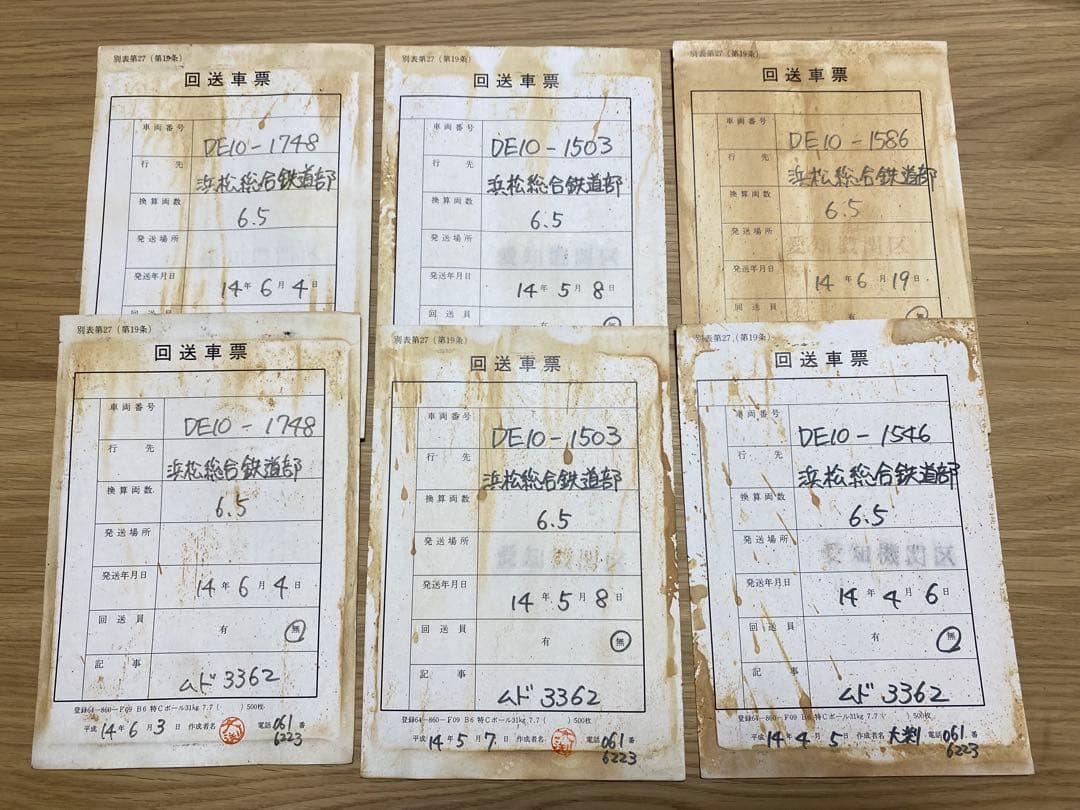 別表第27(第19条)
回送車票
車両番号 DE10-1748
行先 浜松総合鉄道部
換算両数 6.5
発送場所
発送年月日 14年6月4日
回送員
別表第27(第19条)
回送車票
車両番号 DE10-1503
行先 浜松総合鉄道部
換算両数 6.5
発送場所
発送年月日 14年5月8日
回送員 有 無
別表第27(第19条)
回送車票
車両番号 DE10-1586
行先 浜松総合鉄道部
換算両数 6.5
発送場所
発送年月日 14年6月19日
回送員 有 無
別表第27(第19条)
回送車票
車両番号 DE10-1748
行先 浜松総合鉄道部
換算両数 6.5
発送場所
発送年月日 14年6月4日
回送員 有 無
記事 ムド3362
登録64-860-F09 B6 特Cボール31kg 7.7( )500枚
平成14年6月3日 作成者名 電話061番
6223
別表第27(第19条)
回送車票
車両番号 DE10-1503
行先 浜松総合鉄道部
換算両数 6.5
発送場所
発送年月日 14年5月8日
回送員 有 無
記事 ムド3362
登録64-860-F09 B6 特Cボール31kg 7.7( )500枚
平成14年5月7日 作成者名 電話061番
6223
別表第27(第19条)
回送車票
車両番号 DE10-1546
行先 浜松総合鉄道部
換算両数 6.5
発送場所
発送年月日 14年4月6日
回送員 有 無
記事 ムド3362
登録64-860-F09 B6 特Cボール31kg 7.7( )500枚
平成14年4月5日 作成者名 大渕 電話061番
6223